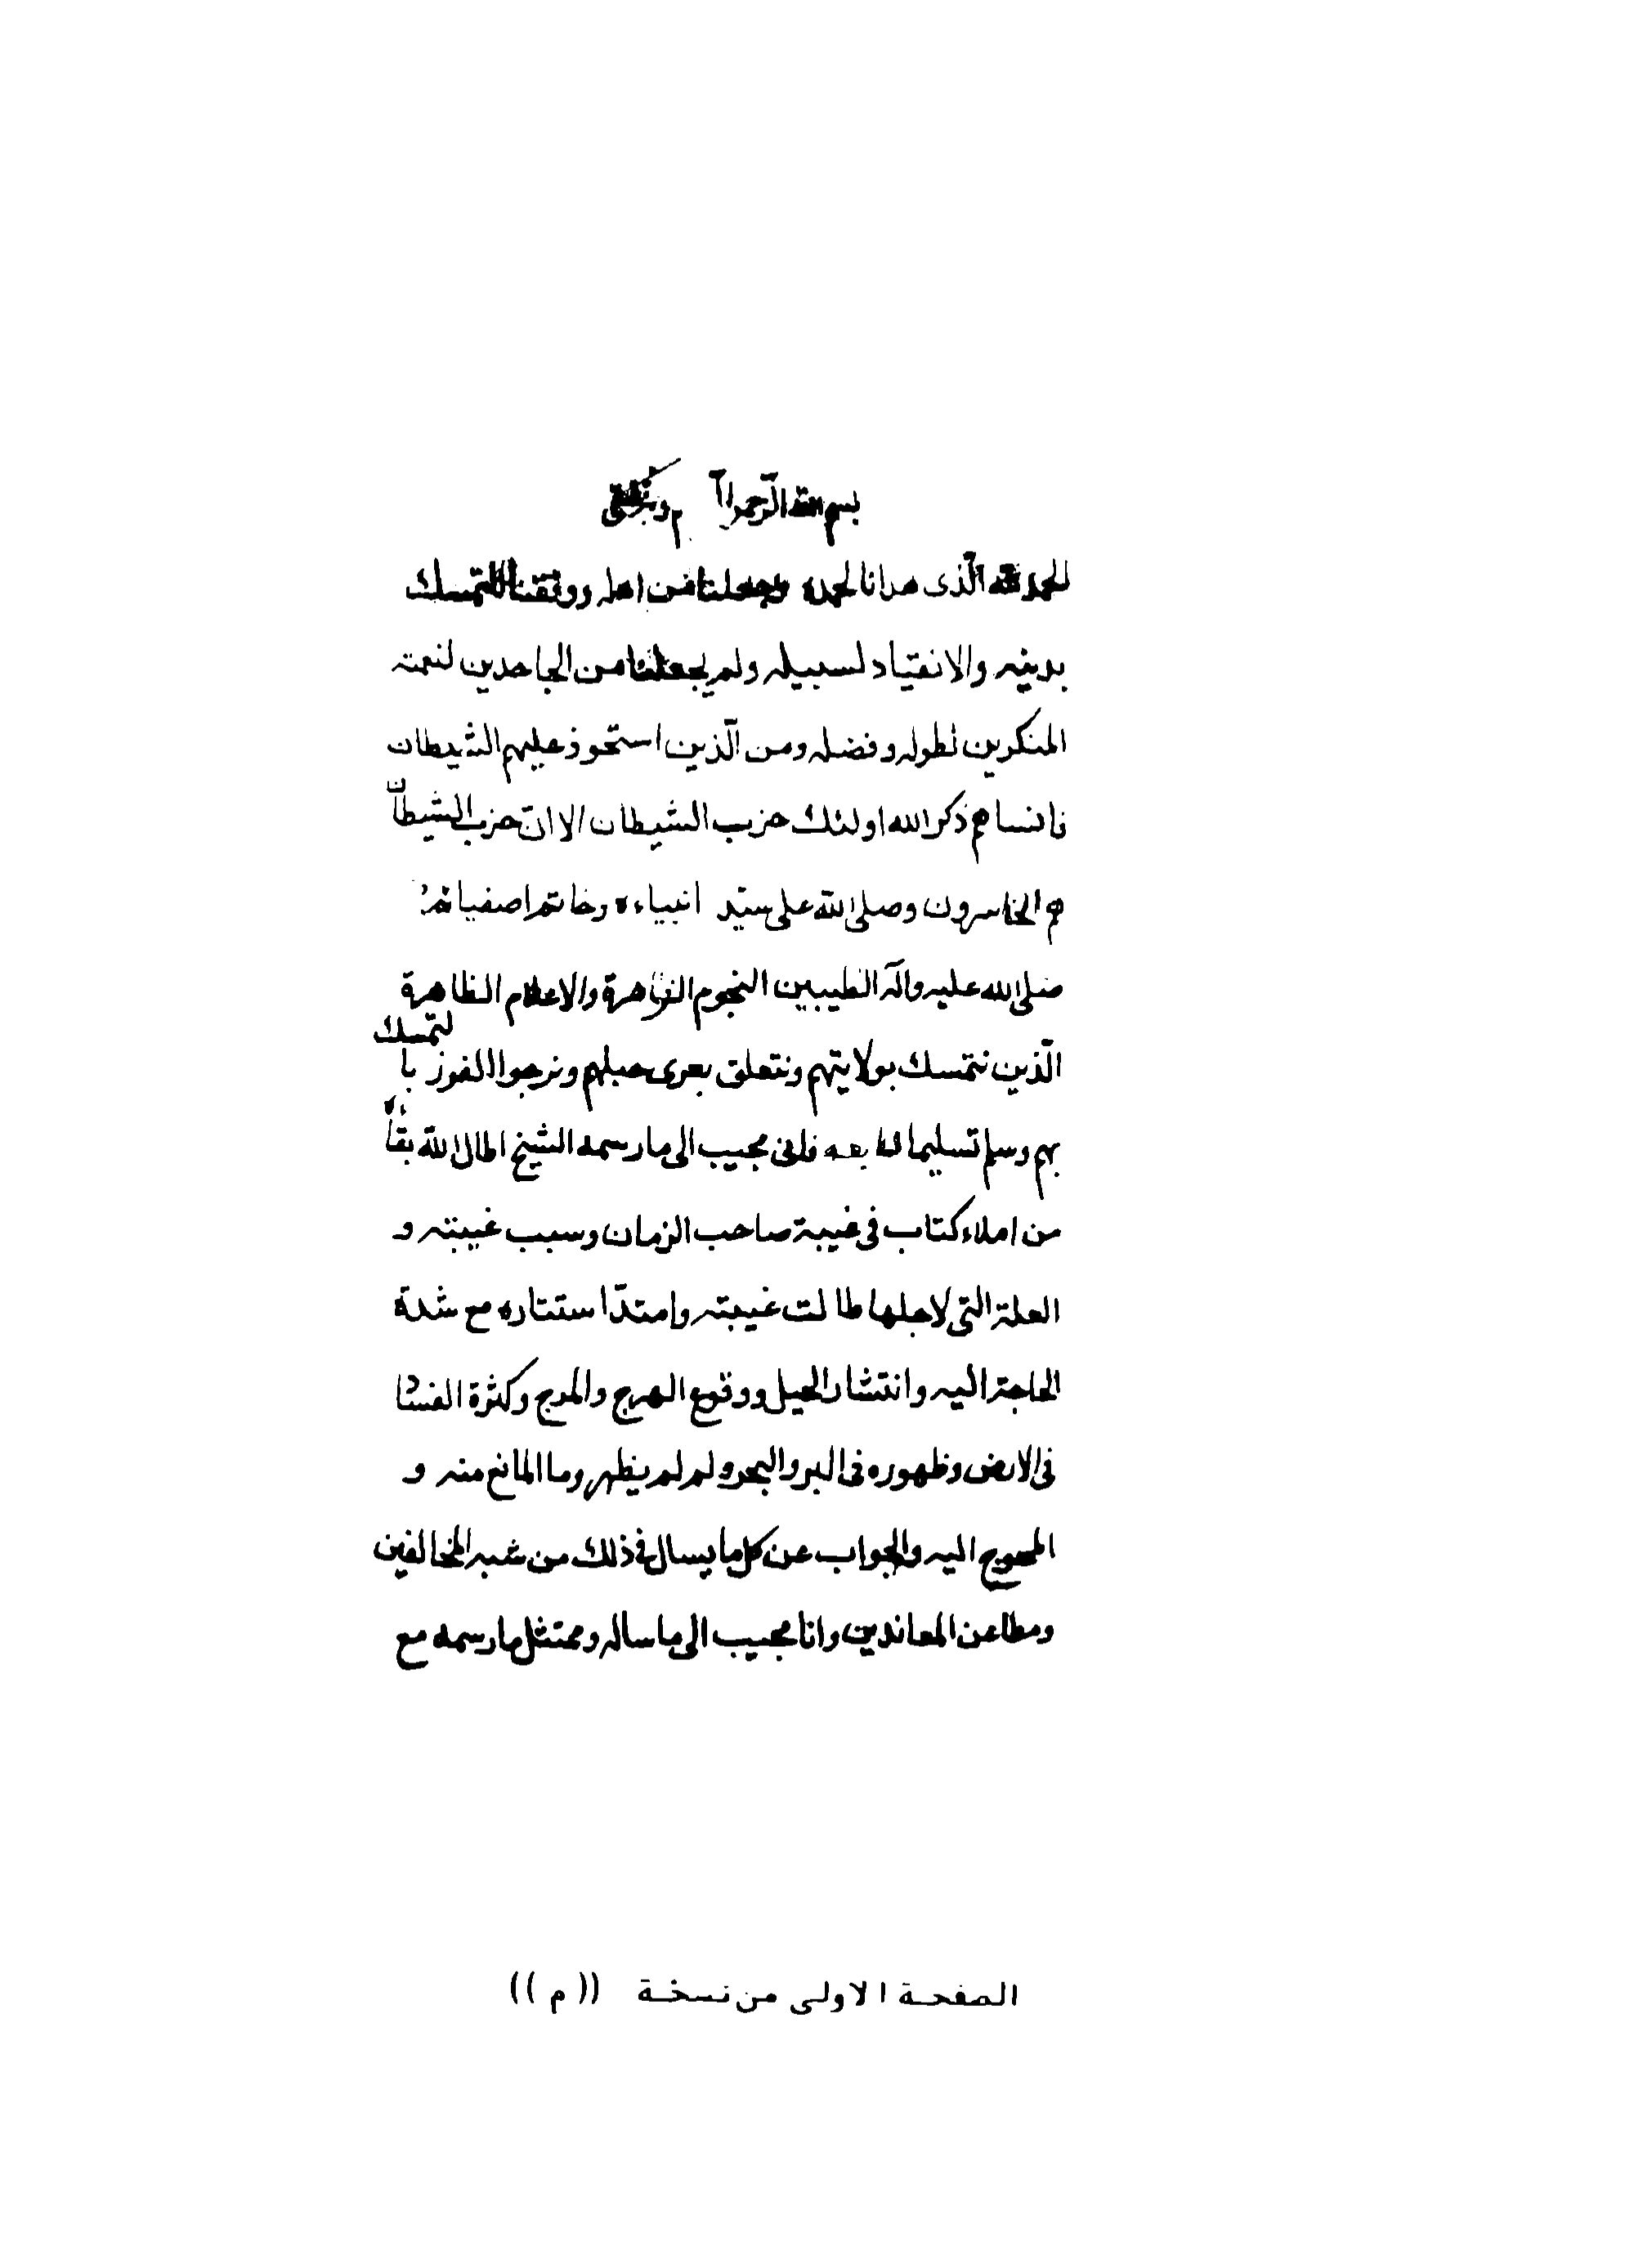 بسم الله الرحمن
الحمد لله الّذى هدانا لحمده وجعلنا من اهله ووفقنا للتمسك
بدينه والانقياد لسبيله ولم يجعلنا من الجاحدين لنعمته
المنكرين لطوله وفضله ومن الّذين استحوذ عليهم الشيطان
فانساهم ذكر الله اولئك حزب الشيطان الا انّ حزب الشيطان
هم الخاسرون وصلى الله على سيّد انبياءه وخاتم اصفيائه
صلى الله عليه وآله الطيبين النجوم الزاهرة والاعلام الظاهرة
الّذين نتمسك بولايتهم ونتعلق بعرى حبلهم ونرجوا الفوز بالتمسك
بهم وسلم تسليما اما بعد فانى مجيب الى ما رسمه الشيخ اطال الله بقاه
من املاء كتاب فى غيبة صاحب الزمان وسبب غيبته و
العلة التى لاجلها طالت غيبته وامتدّ استتاره مع شدة
الحاجة اليه وانتشار الحيل ووقوع الهرج والمرج وكثرة الفساد
فى الارض وظهوره فى البر والبحر ولم لم يظهر وما المانع منه و
المحوج اليه والجواب عن كل ما يسال فى ذلك من شبه المخالفين
ومطاعن المعاندين وانا مجيب الى ما ساله وممتثل ما رسمه مع
الصفحة الاولى من نسخة ((م))